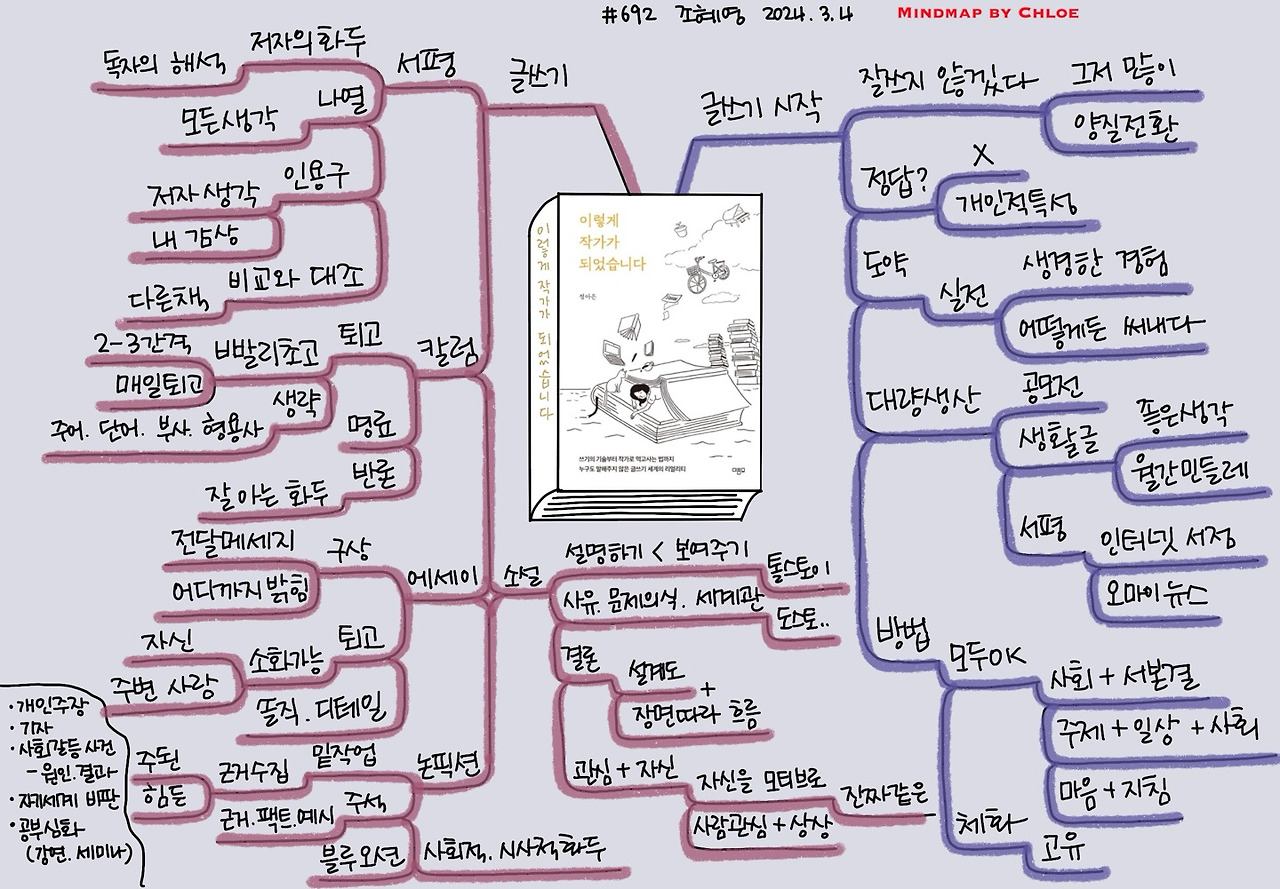 #692 조혜영 2024.3.4
MINDMAP BY CHLOE
글쓰기
서평
저자의 화두
독자의 해석
나열
모든생각
인용구
저자 생각
내 감상
비교와 대조
다른책
칼럼
퇴고
비발리초고
2-3간격
매일퇴고
생략
주어. 단어. 부사. 형용사
명료
반론
잘 아는 화두
에세이
구상
전달메세지
어디까지 밝힘
퇴고
소화가능
자신
주변 사람
솔직. 디테일
논픽션
밑작업
근거수집
주된
힘든
·개인주장
·기자
·사회갈등 사건
- 원인.결과
비판
·공부심화
(강연. 세미나)
주석
근거.팩트.예시
블루오션
사회적. 시사적화두
소설
설명하기 < 보여주기
톨스토이
사유. 문제의식. 세계관
도스토..
결론
설계도
+
장면따라 흐름
관심 + 자신
자신을 모티브로
사람관심 + 상상
진짜같은
이렇게 작가가 되었습니다
이렇게
작가가
되었습니다
정아은
쓰기의 기술부터 작가로 먹고사는 법까지
누구도 말해주지 않은 글쓰기 세계의 리얼리티
마름모
글쓰기 시작
잘쓰지 않겠다
그저 많이
양질전환
정답?
X
개인적특성
도약
실전
생경한 경험
어떻게든 써내다
대량생산
공모전
생활글
좋은생각
월간민들레
서평
인터넷 서점
오마이뉴스
방법
모두OK
사회 + 서본결
주제 + 일상 + 사회
마음 + 지침
체화
고유